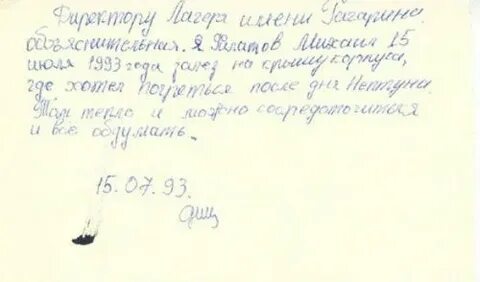 Директору Лагеря имени Гагарина.
объяснительная. Я Филатов Михаил 15
июля 1993 года залез на крышу корпуса,
где хотел погреться после дня Нептуна.
Там тепло и можно сосредоточиться
и всё обдумать.
15.07.93.